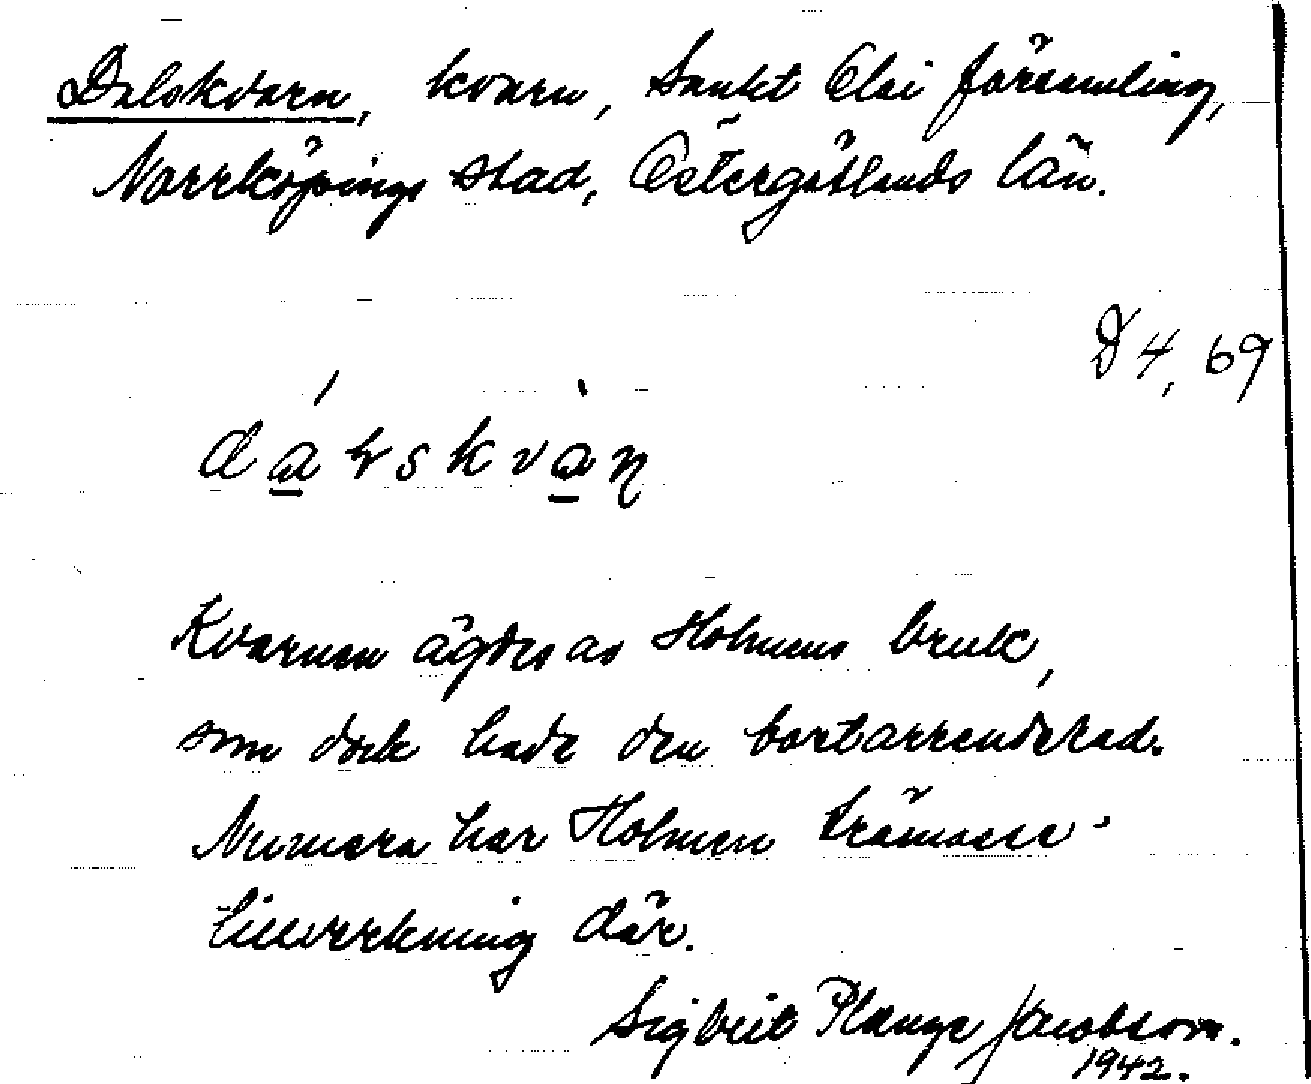 Dalskvarn, kvarn, Sankt Olai församling,
Norrköpings stad, Östergötlands län.
D 4, 69
Kvarnen ägdes av Holmens bruk,
som dock hade den bortarrenderad.
Numera har Holmen trämasse-
tillverkning där.
Sigbrit Plænge Jacobson.
1942.